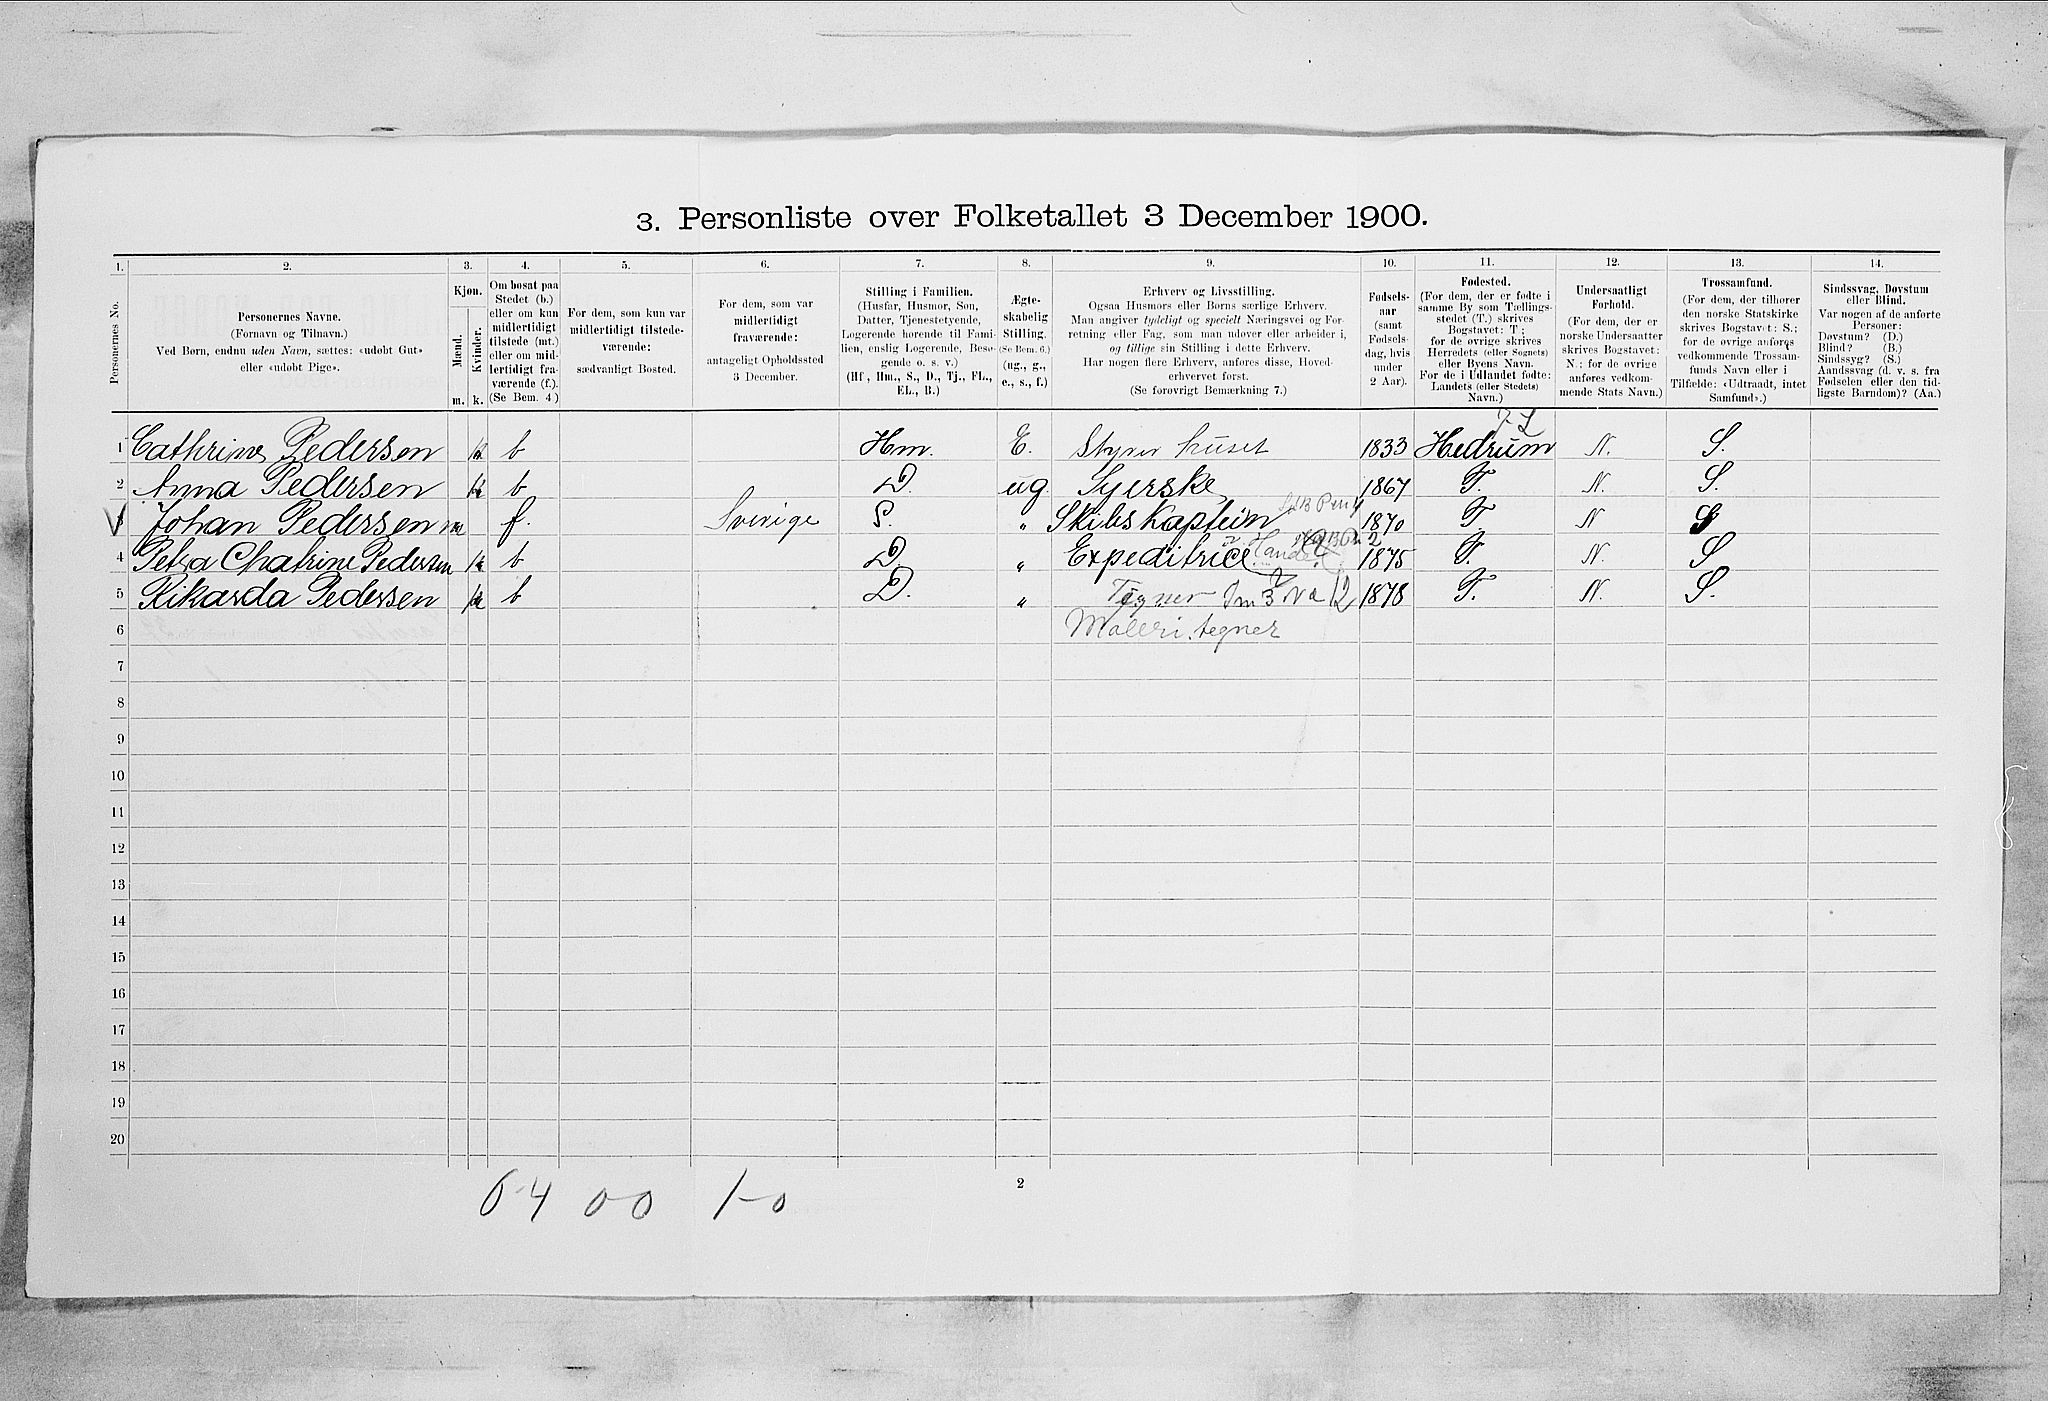 3. Personliste over Folketallet 3 December 1900.
1. 2. 3. 4. 5. 6. 7. 8. 9. 10. 11. 12. 13. 14.
Personernes No.
Personernes Navne.
(Fornavn og Tilnavn.)
Ved Børn, endnu uden Navn, sættes: «udøbt Gut»
eller «udøbt Pige».
Kjøn.
Mænd.
Kvinder.
m. k.
Om bosat paa
Stedet (b.)
eller om kun
midlertidigt
tilstede (mt.)
eller om mid-
lertidigt fra-
værende (f.).
(Se Bem. 4.)
For dem, som kun var
midlertidigt tilstede-
værende:
sædvanligt Bosted.
For dem, som var
midlertidigt
fraværende:
antageligt Opholdssted
3 December.
Stilling i Familien.
(Husfar, Husmor, Søn,
Datter, Tjenestetyende,
Logerende hørende til Fami-
lien, enslig Logerende, Besø-
gende o. s. v.)
(Hf., Hm., S., D., Tj., FL.,
EL., B.)
Ægte-
skabelig
Stilling.
(Se Bem. 6.)
(ug., g.,
e., s., f.)
Erhverv og Livsstilling.
Ogsaa Husmors eller Børns særlige Erhverv.
Man angiver tydeligt og specielt Næringsvei og For-
retning eller Fag, som man udøver eller arbeider i,
og tillige sin Stilling i dette Erhverv.
Har nogen flere Erhverv, anføres disse, Hoved-
erhvervet først.
(Se forøvrigt Bemærkning 7.)
Fødsels-
aar
(samt
Fødsels-
dag, hvis
under
2 Aar).
Fødested.
(For dem, der er fødte i
samme By som Tællings-
stedet (T.) skrives
Bogstavet: T;
for de øvrige skrives
Herredets (eller Sognets)
eller Byens Navn.
For de i Udlandet fødte:
Landets (eller Stedets)
Navn.)
Undersaatligt
Forhold.
(For dem, der er
norske Undersaatter
skrives Bogstavet:
N.; for de øvrige
anføres vedkom-
mende Stats Navn.)
Trossamfund.
(For dem, der tilhører
den norske Statskirke
skrives Bogstavet: S.;
for de øvrige anføres
vedkommende Trossam-
funds Navn eller i
Tilfælde: «Udtraadt, intet
Samfund».)
Sindssvag, Døvstum
eller Blind.
Var nogen af de anførte
Personer:
Døvstum? (D.)
Blind? (B.)
Sindssyg? (S.)
Aandssvag (d. v. s. fra
Fødselen eller den tid-
ligste Barndom)? (Aa.)
1 Cathrine Pedersen k b Hm. E. Styrer huset 1833 Hedrum N. S.
2 Anna Pedersen k b D. ug. Syerske 1867 T. N. S.
3 Johan Pedersen m f. Sverige S. " Skibskaptein 1870 T. N S
4 Petra Chatrine Pedersen k b D. " Expeditrice i Handel 1875 T. N. S
5 Rikarda Pedersen k b D. " Tegner 1878 T. N. S.
6 Maleri. tegner
7
8
9
10
11
12
13
14
15
16
17
18
19
20
0-4 0-0 1-0
2